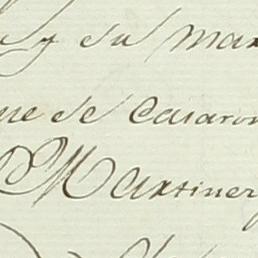 y su mar
ue se casaron
Martinez